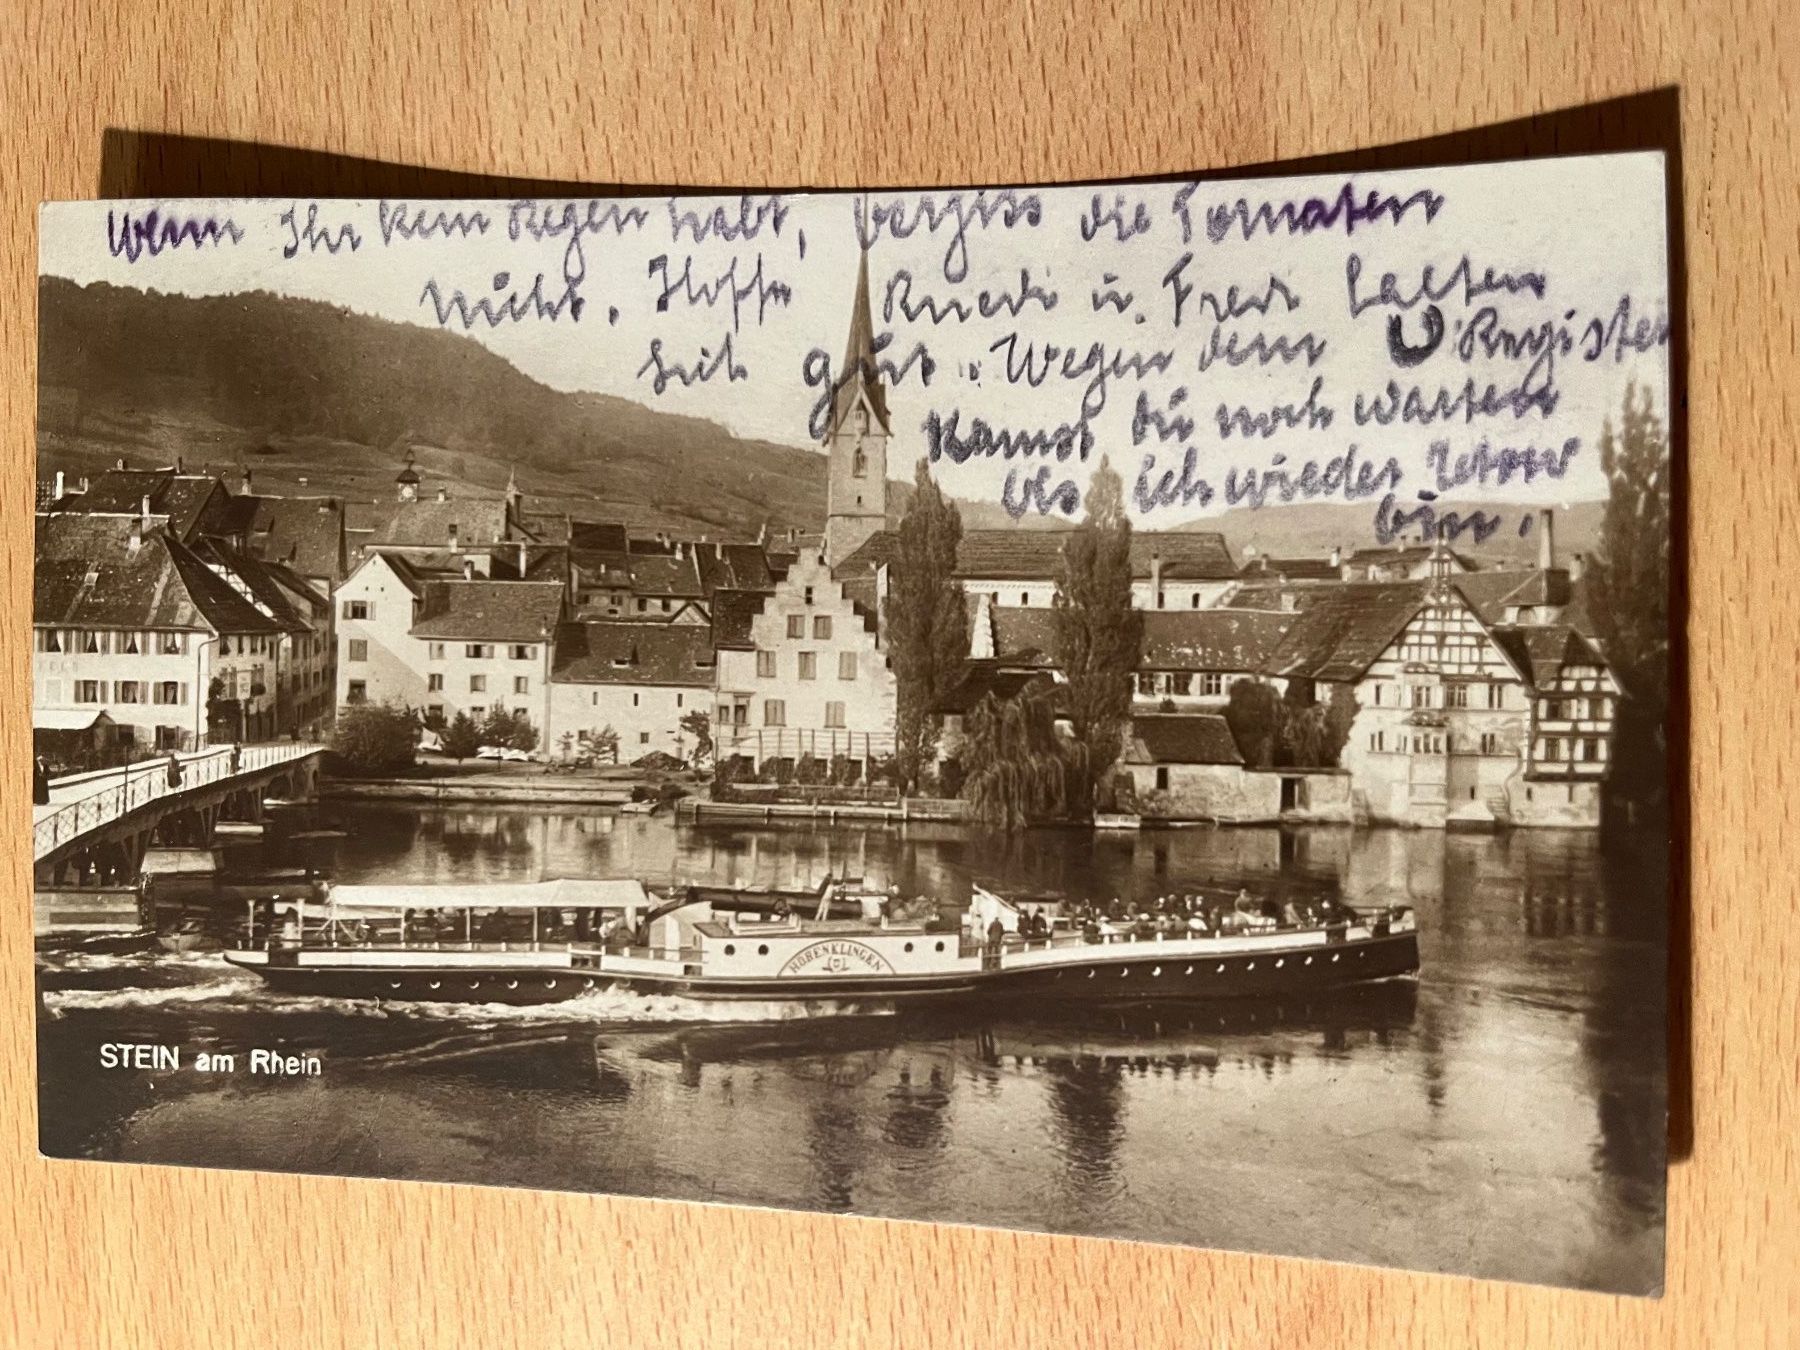 Wenn Ihr kein Regen habt, vergiss die Tomaten
nicht. Hoffe Ruedi u. Fredi halten
sich gut. Wegen dem Register
kannst du noch warten
bis ich wieder
bin.
HOHENKLINGEN
STEIN am Rhein